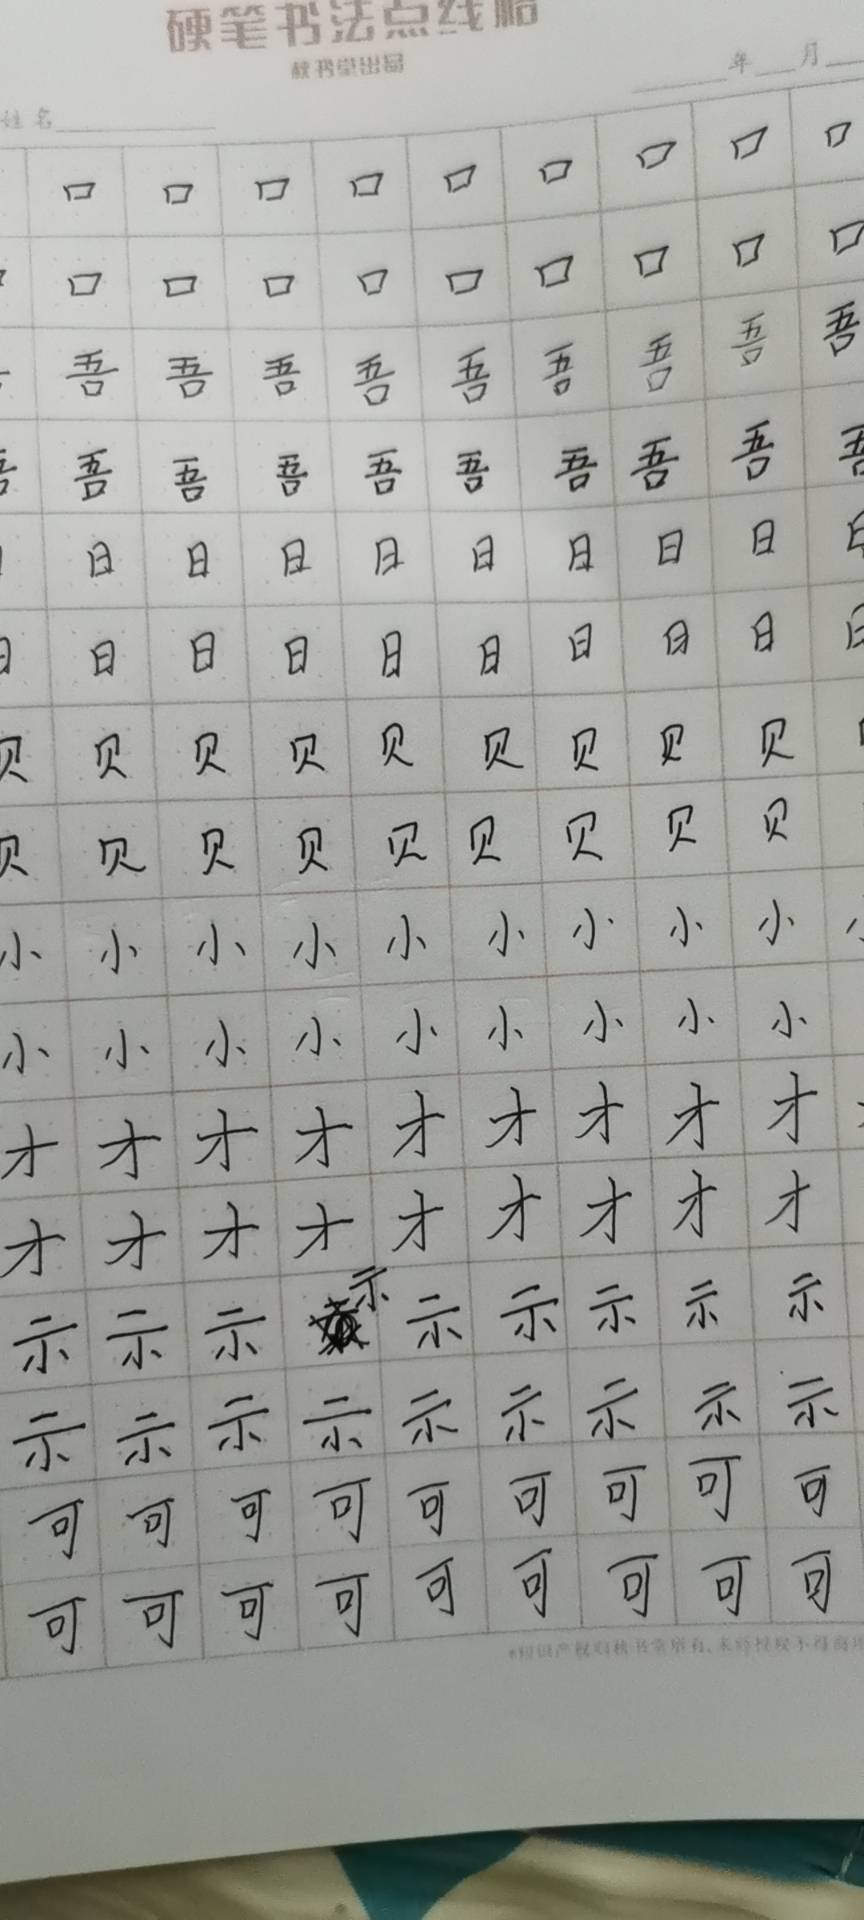 硬笔书法点线格
秋书堂出品
姓名 年 月
口 口 口 口 口 口 口 口 口
口 口 口 口 口 口 口 口 口
吾 吾 吾 吾 吾 吾 吾 吾 吾
吾 吾 吾 吾 吾 吾 吾 吾 吾 吾
日 日 日 日 日 日 日 日
日 日 日 日 日 日 日 日 日
贝 贝 贝 贝 贝 贝 贝 贝 贝
贝 贝 贝 贝 贝 贝 贝 贝 贝
小 小 小 小 小 小 小 小 小
小 小 小 小 小 小 小 小 小
才 才 才 才 才 才 才 才 才
才 才 才 才 才 才 才 才 才
示 示 示 示 示 示 示 示 示
示 示 示 示 示 示 示 示 示
可 可 可 可 可 可 可 可 可
可 可 可 可 可 可 可 可 可
*知识产权归秋书堂所有,未经授权不得商用